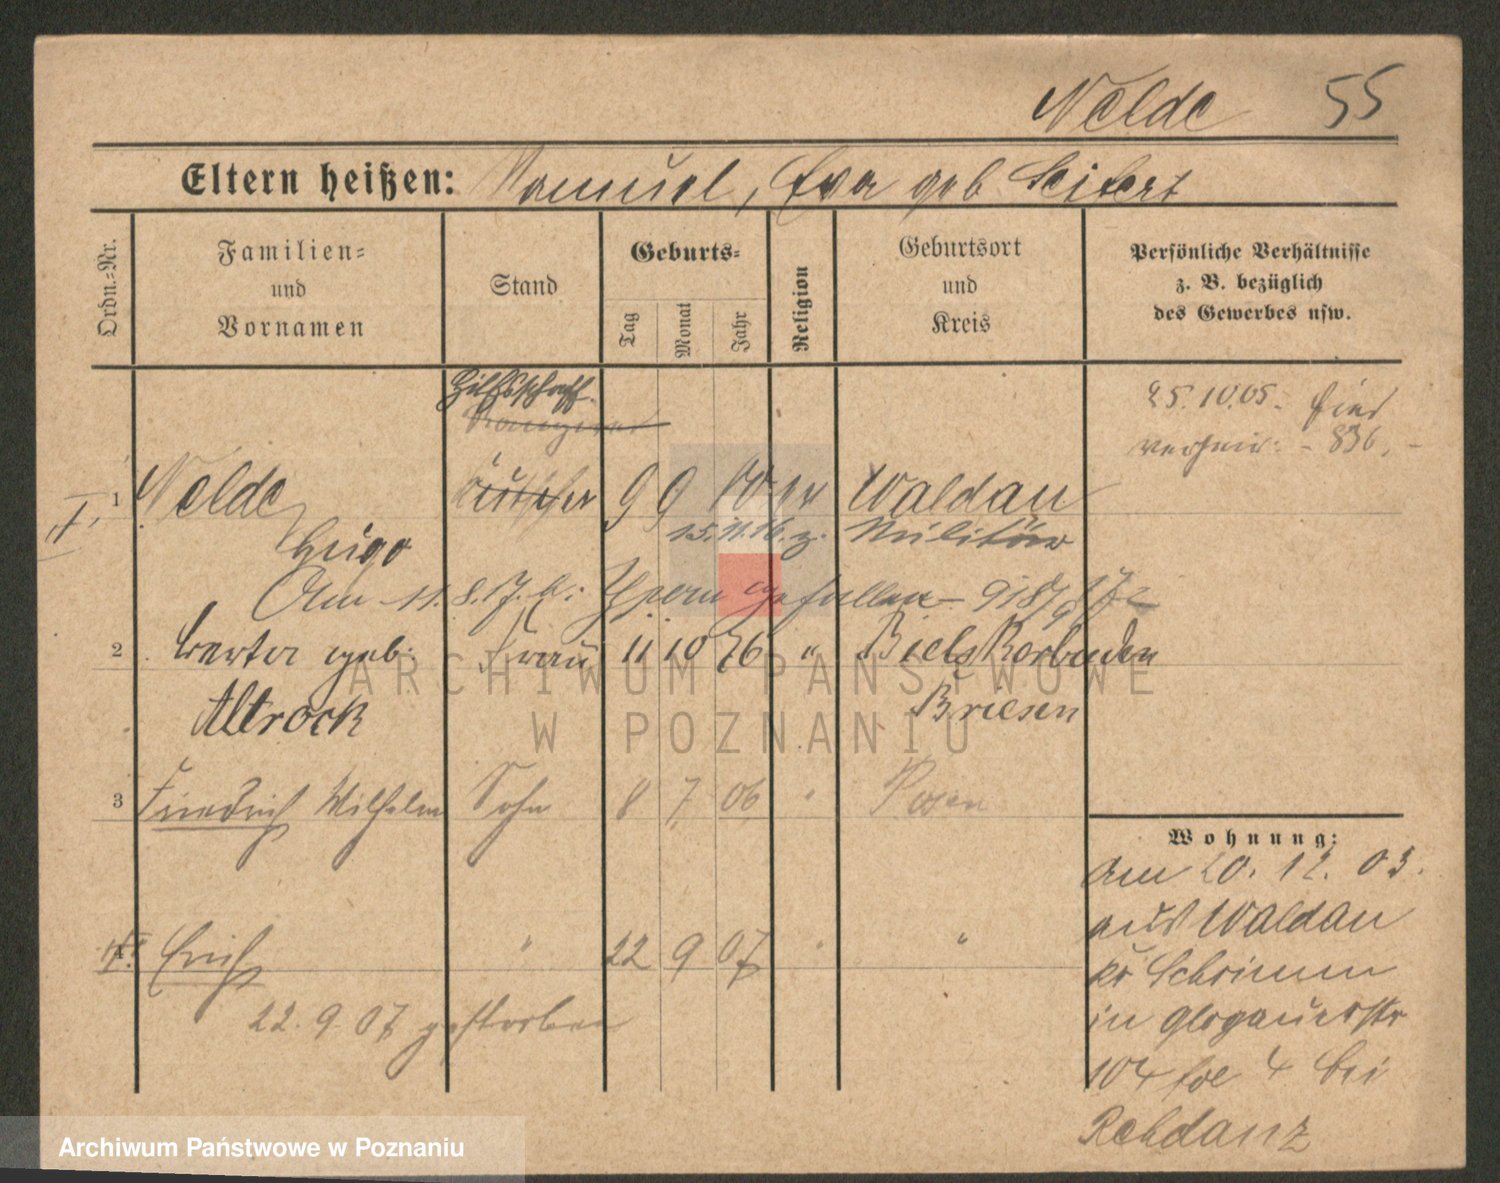 Nelde 55
Eltern heißen: Samuel, Eva geb Seifert
Ordn.=Nr.
Familien=
und
Vornamen
Stand
Geburts=
Tag
Monat
Jahr
Religion
Geburtsort
und
Kreis
Persönliche Verhältnisse
z. B. bezüglich
des Gewerbes usw.
Hilfsschaff.
25.10.05. hier
verheir: - 836. -
1 Nelde Kutscher 9 9 Waldau
Hugo 15.11.16. z. Militär
Am 11.8.17. b. Ypern gefallen
2 Berta geb. Frau 11 10 76 " Bielsk
Altrock Briesen
3 Friedrich Wilhelm Sohn 8 7 06 " Posen
Wohnung:
am 20. 12. 03.
aus Waldau
Kr Schrimm
in Glogauerstr
104 bei
Rehdanz
4 Erich " 22 9 07 " "
22.9.07 gestorben
ARCHIWUM PAŃSTWOWE
W POZNANIU
Archiwum Państwowe w Poznaniu